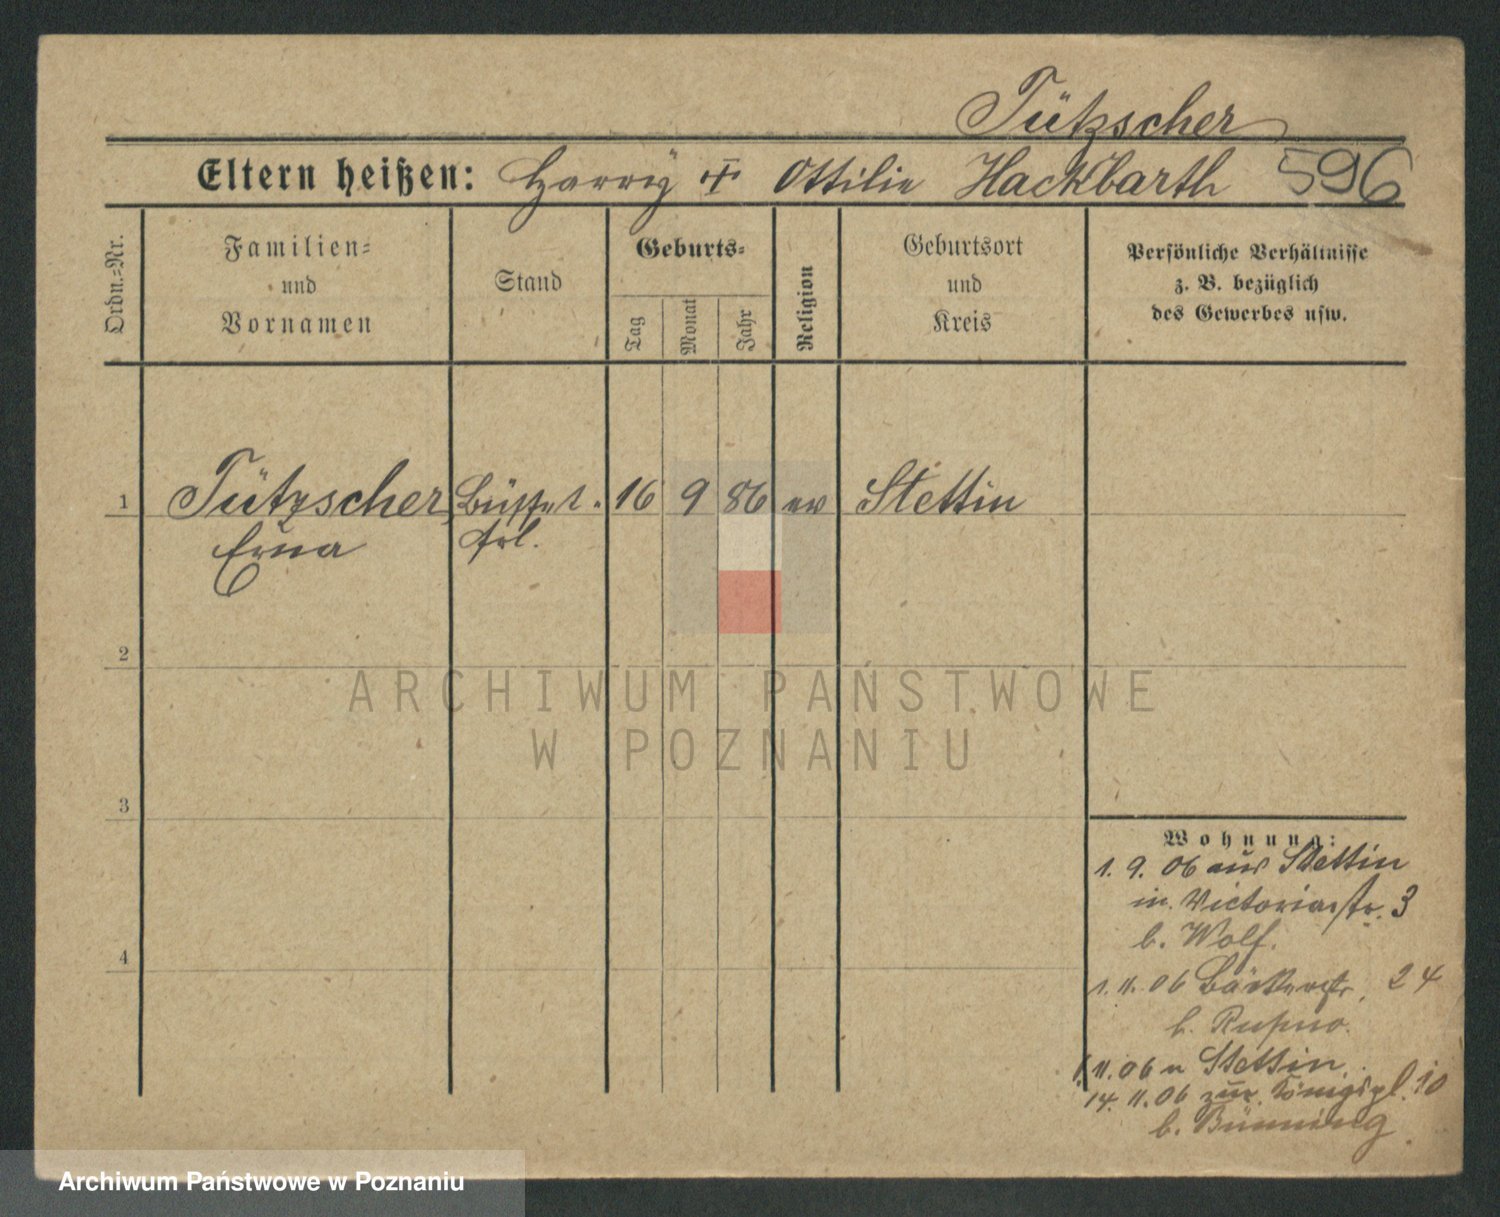 Tützscher
Eltern heißen: Harry + Ottilie Hackbarth 596
Ordn.=Nr.
Familien=
und
Vornamen
Stand
Geburts=
Tag
Monat
Jahr
Religion
Geburtsort
und
Kreis
Persönliche Verhältnisse
z. B. bezüglich
des Gewerbes usw.
1 Tützscher, Büffet- 16 9 86 ev Stettin
Erna frl.
2
3
4
Wohnung:
1. 9. 06 aus Stettin
in Victoriastr. 3
b. Wolf.
1. 11. 06 Bäckerstr. 24
b.
11. 06 n Stettin
14. 11. 06 zur. Königspl. 10
b. Bünning
ARCHIWUM PAŃSTWOWE
W POZNANIU
Archiwum Państwowe w Poznaniu